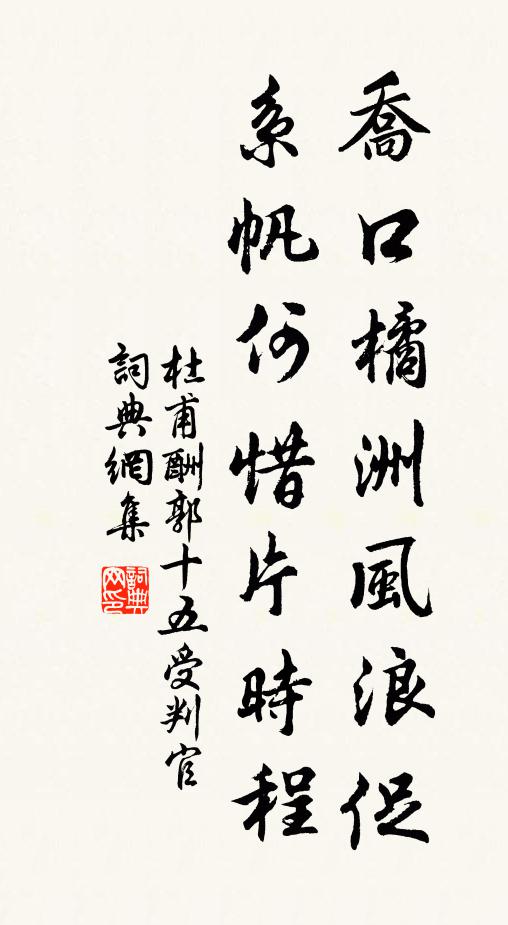 喬口橘洲風浪促
系帆何惜片時程
杜甫酬郭十五受判官
詞典網集
詞典
网印